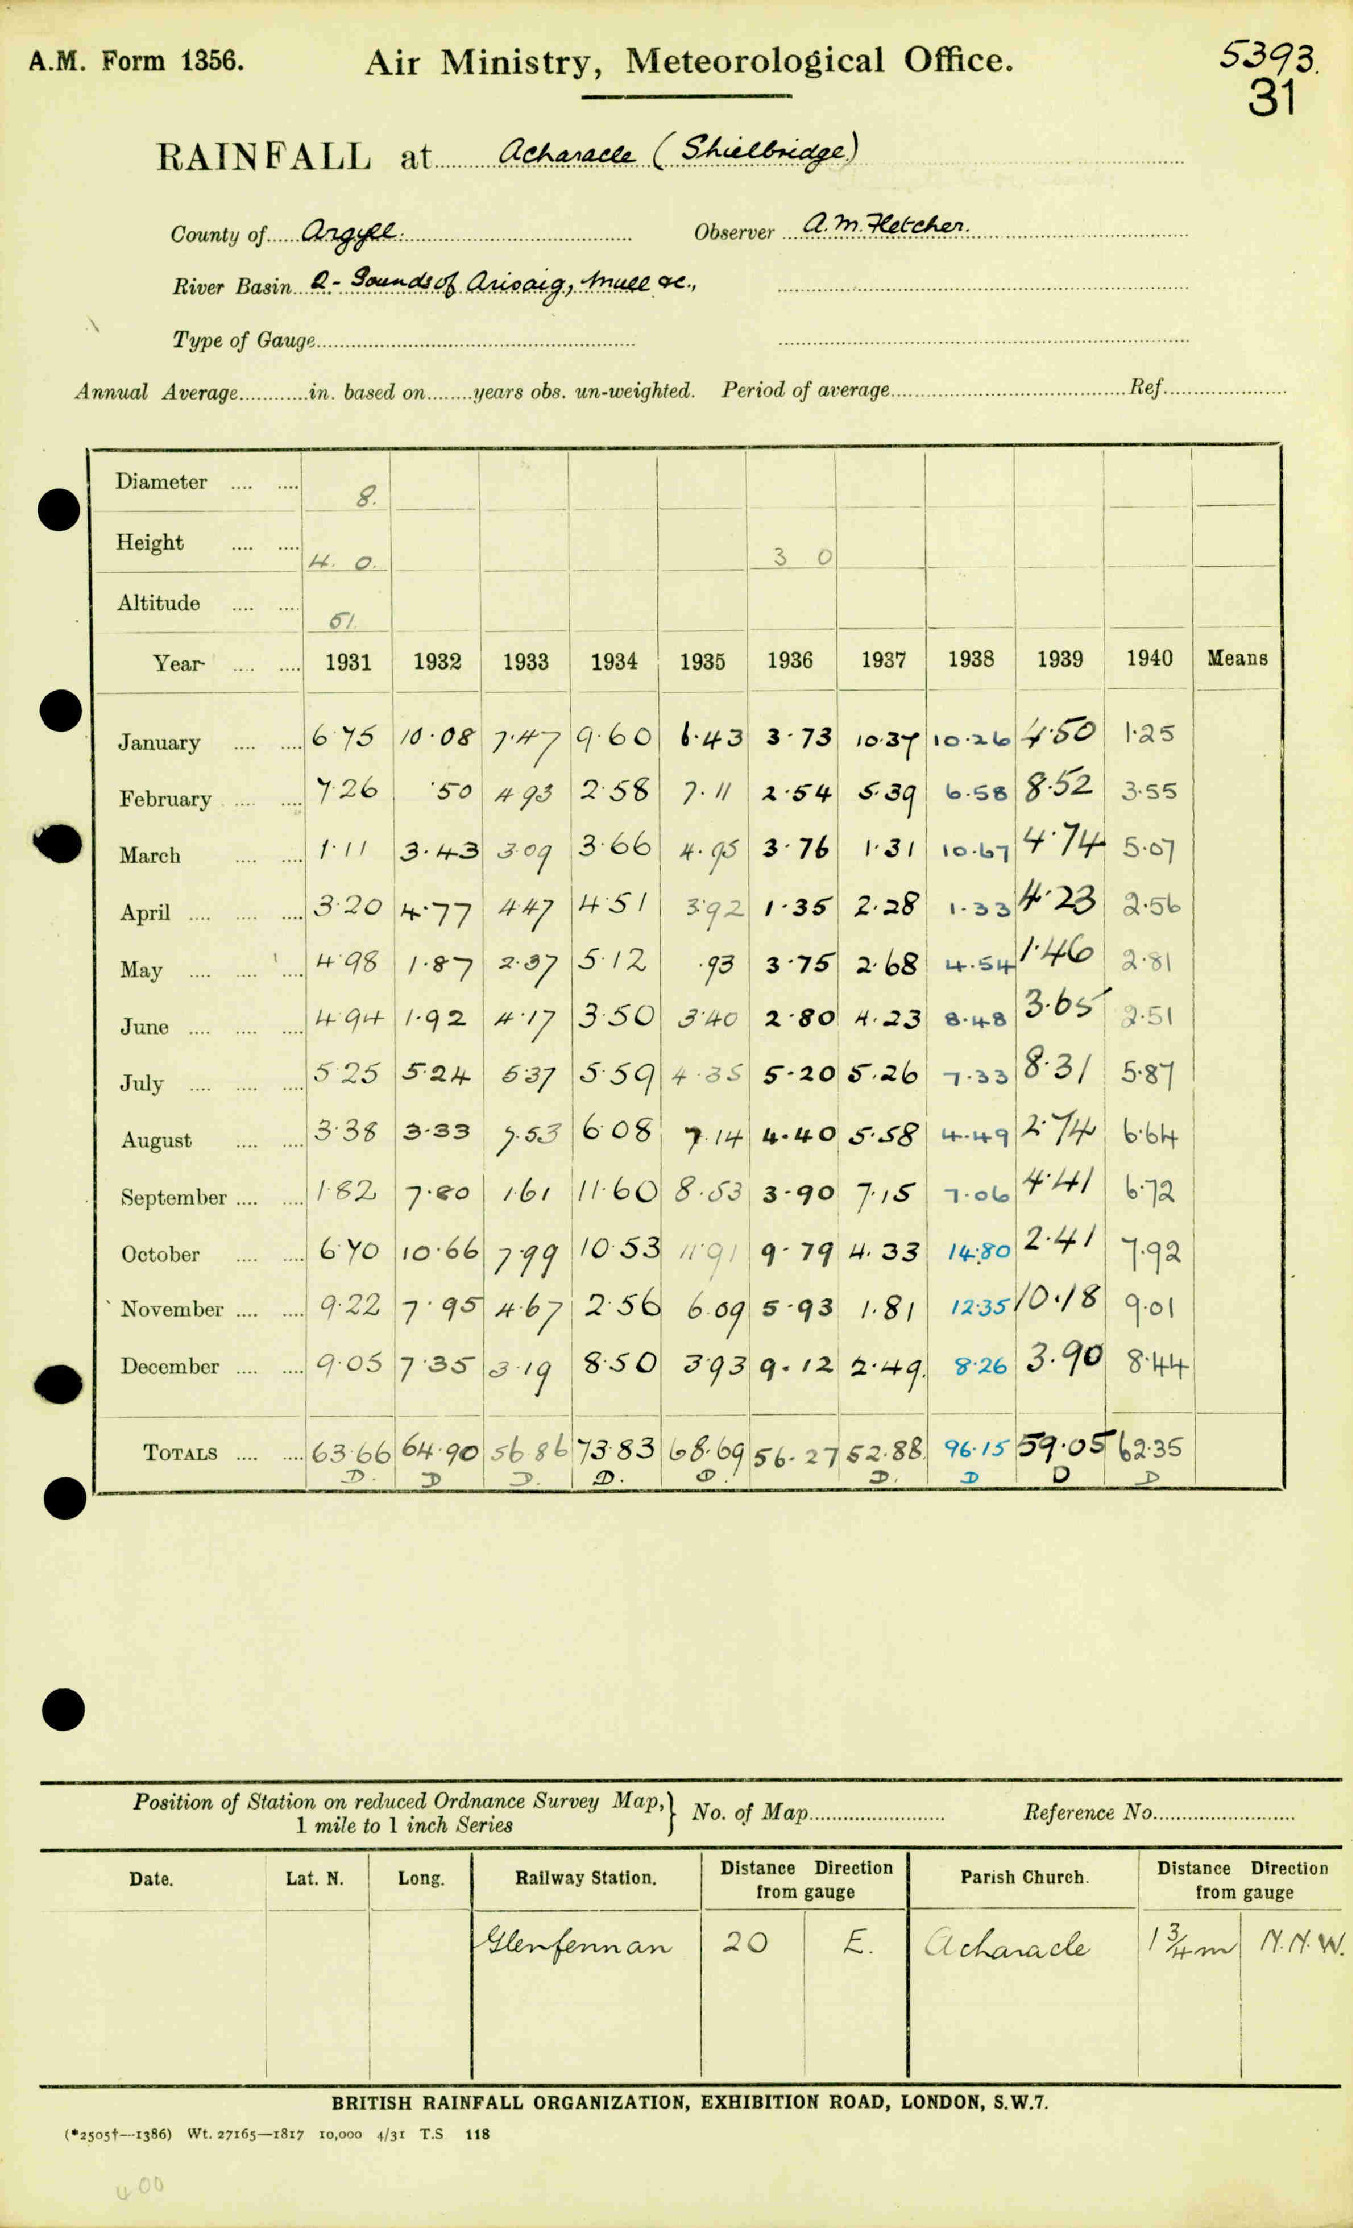 A.M. Form 1356.
Air Ministry, Meteorological Office.
5393.
31
RAINFALL at Acharacle (Shielbridge)
County of Argyll. Observer A.M. Fletcher.
River Basin 2 - Sounds of Arisaig, Mull &c.,
Type of Gauge
Annual Average in. based on years obs. un-weighted. Period of average Ref.
Diameter 8.
Height 4. 0. 3 0
Altitude 51
Year 1931 1932 1933 1934 1935 1936 1937 1938 1939 1940 Means
January 6.75 10.08 7.47 9.60 6.43 3.73 10.37 10.26 4.50 1.25
February 7.26 .50 4.93 2.58 7.11 2.54 5.39 6.58 8.52 3.55
March 1.11 3.43 3.09 3.66 4.95 3.76 1.31 10.67 4.74 5.07
April 3.20 4.77 4.47 4.51 3.92 1.35 2.28 1.33 4.23 2.56
May 4.98 1.87 2.37 5.12 .93 3.75 2.68 4.54 1.46 2.81
June 4.94 1.92 4.17 3.50 3.40 2.80 4.23 8.48 3.65 2.51
July 5.25 5.24 5.37 5.59 4.35 5.20 5.26 7.33 8.31 5.87
August 3.38 3.33 7.53 6.08 7.14 4.40 5.58 4.49 2.74 6.64
September 1.82 7.80 1.61 11.60 8.53 3.90 7.15 7.06 4.41 6.72
October 6.70 10.66 7.99 10.53 11.91 9.79 4.33 14.80 2.41 7.92
November 9.22 7.95 4.67 2.56 6.09 5.93 1.81 12.35 10.18 9.01
December 9.05 7.35 3.19 8.50 3.93 9.12 2.49 8.26 3.90 8.44
TOTALS 63.66 64.90 56.86 73.83 68.69 56.27 52.88 96.15 59.05 62.35
D. D D. D. D. D. D D D
Position of Station on reduced Ordnance Survey Map,
1 mile to 1 inch Series
No. of Map Reference No.
Date. Lat. N. Long. Railway Station. Distance Direction from gauge Parish Church. Distance Direction from gauge
Glenfennan 20 E. Acharacle 1 3/4 m N.N.W.
BRITISH RAINFALL ORGANIZATION, EXHIBITION ROAD, LONDON, S.W.7.
(*2505†—1386) Wt. 27165—1817 10,000 4/31 T.S 118
400